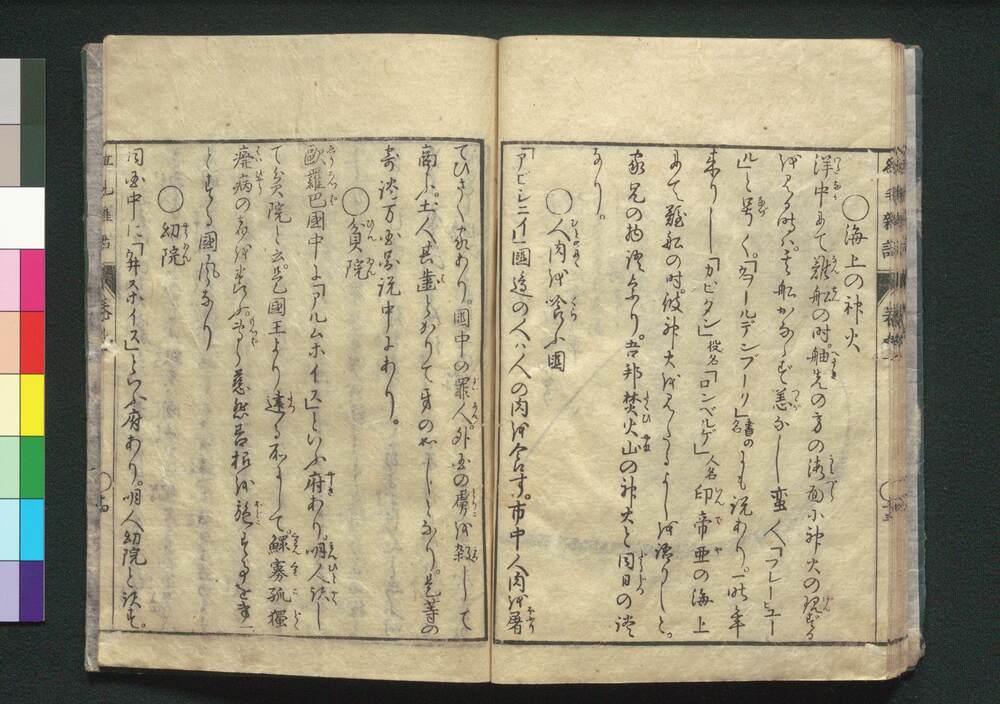 ○海上の神火
洋中にて難船の時。舳先の方の海面に神火の現ずる
を見る時ハ。其船かならず恙なしと。蛮人「フレーヒュー
ル」と号く。「カヲールデンブーリ」書の名にも説あり。一昨年
来りし「カピタン」役名「ロンベルゲ」人名印帝亜の海上
にて難船の時。彼神火を見たるよしを語りしと。
家兄の物語なり。吾邦焚火山の神火と同日の談
なり。
○人肉を喰ふ国
「アビシニイ」国辺の人ハ人の肉を食す。市中人肉を屠
てひさく家あり。国中の罪人。外国の虜を殺して
商ふ。土人其歯とがりて牙の如しとなり。是等の
奇談万国図説中にあり。
○貧院
欧羅巴国中に「アルムホイス」といふ府あり。明人訳し
て貧院と云。是国王より建る所にして。鰥寡孤独
癈病の者を養ふ。
とする国風なり
○幼院
同国中に「弁スホイス」といふ府あり。明人幼院と訳す。
紅毛雑話